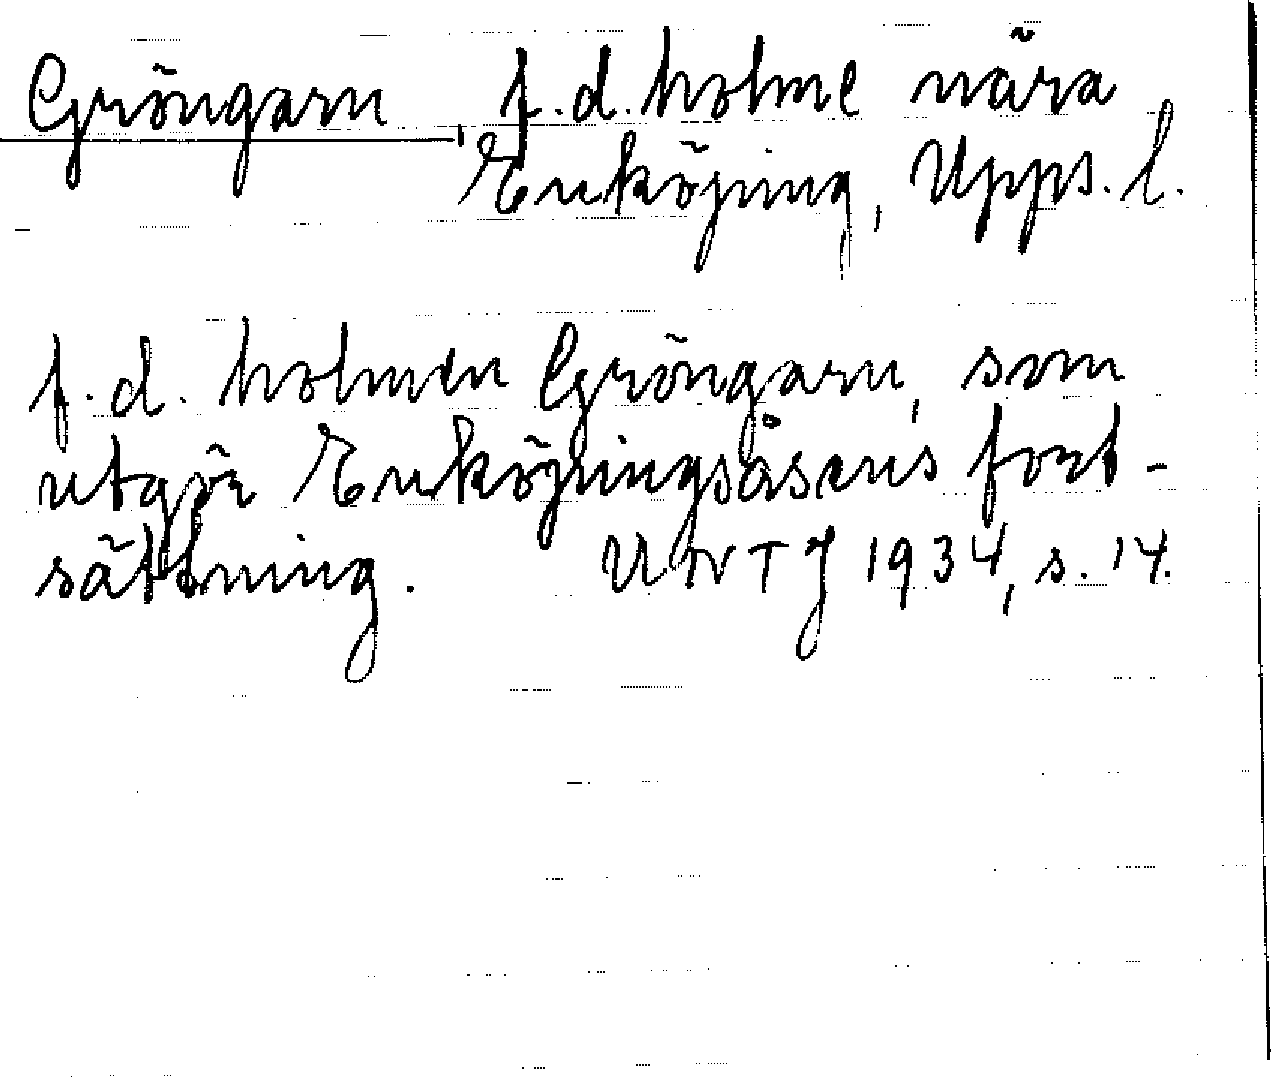 Gröngarn, f.d. holme nära
Enköping, Upps. l.
f.d. holmen Gröngarn, som
utgör Enköpingsåsens fort-
sättning. UNTJ 1934, s. 14.